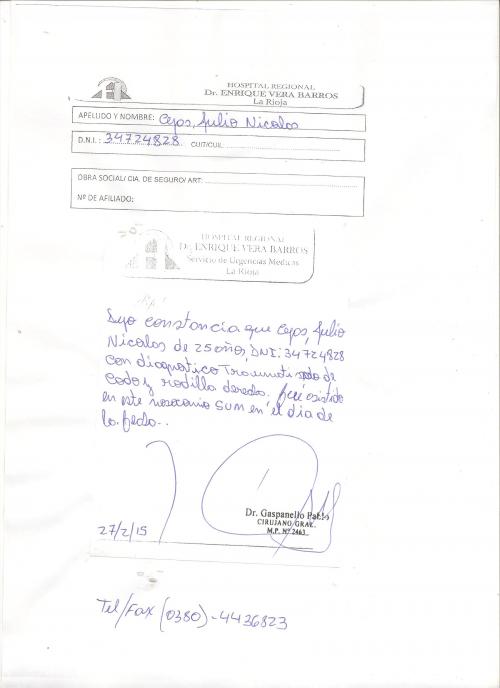 HOSPITAL REGIONAL
Dr. ENRIQUE VERA BARROS
La Rioja
APELLIDO Y NOMBRE: Ceps, Julio Nicolas
D.N.I.: 34724828 CUIT/CUIL
OBRA SOCIAL/ CIA. DE SEGURO/ ART:
Nº DE AFILIADO:
HOSPITAL REGIONAL
Dr. ENRIQUE VERA BARROS
Servicio de Urgencias Medicas
La Rioja
Dejo constancia que Ceps, Julio
Nicolas de 25 años, DNI: 34724828
con diagnostico Traumatizado de
Codo y rodilla derecha, fué asistido
en este nosocomio SUM en el dia de
la fecha..
Dr. Gaspanello Pablo
CIRUJANO GRAL.
M.P. Nº 2463
27/2/15
Tel/Fax (0380)-4436823